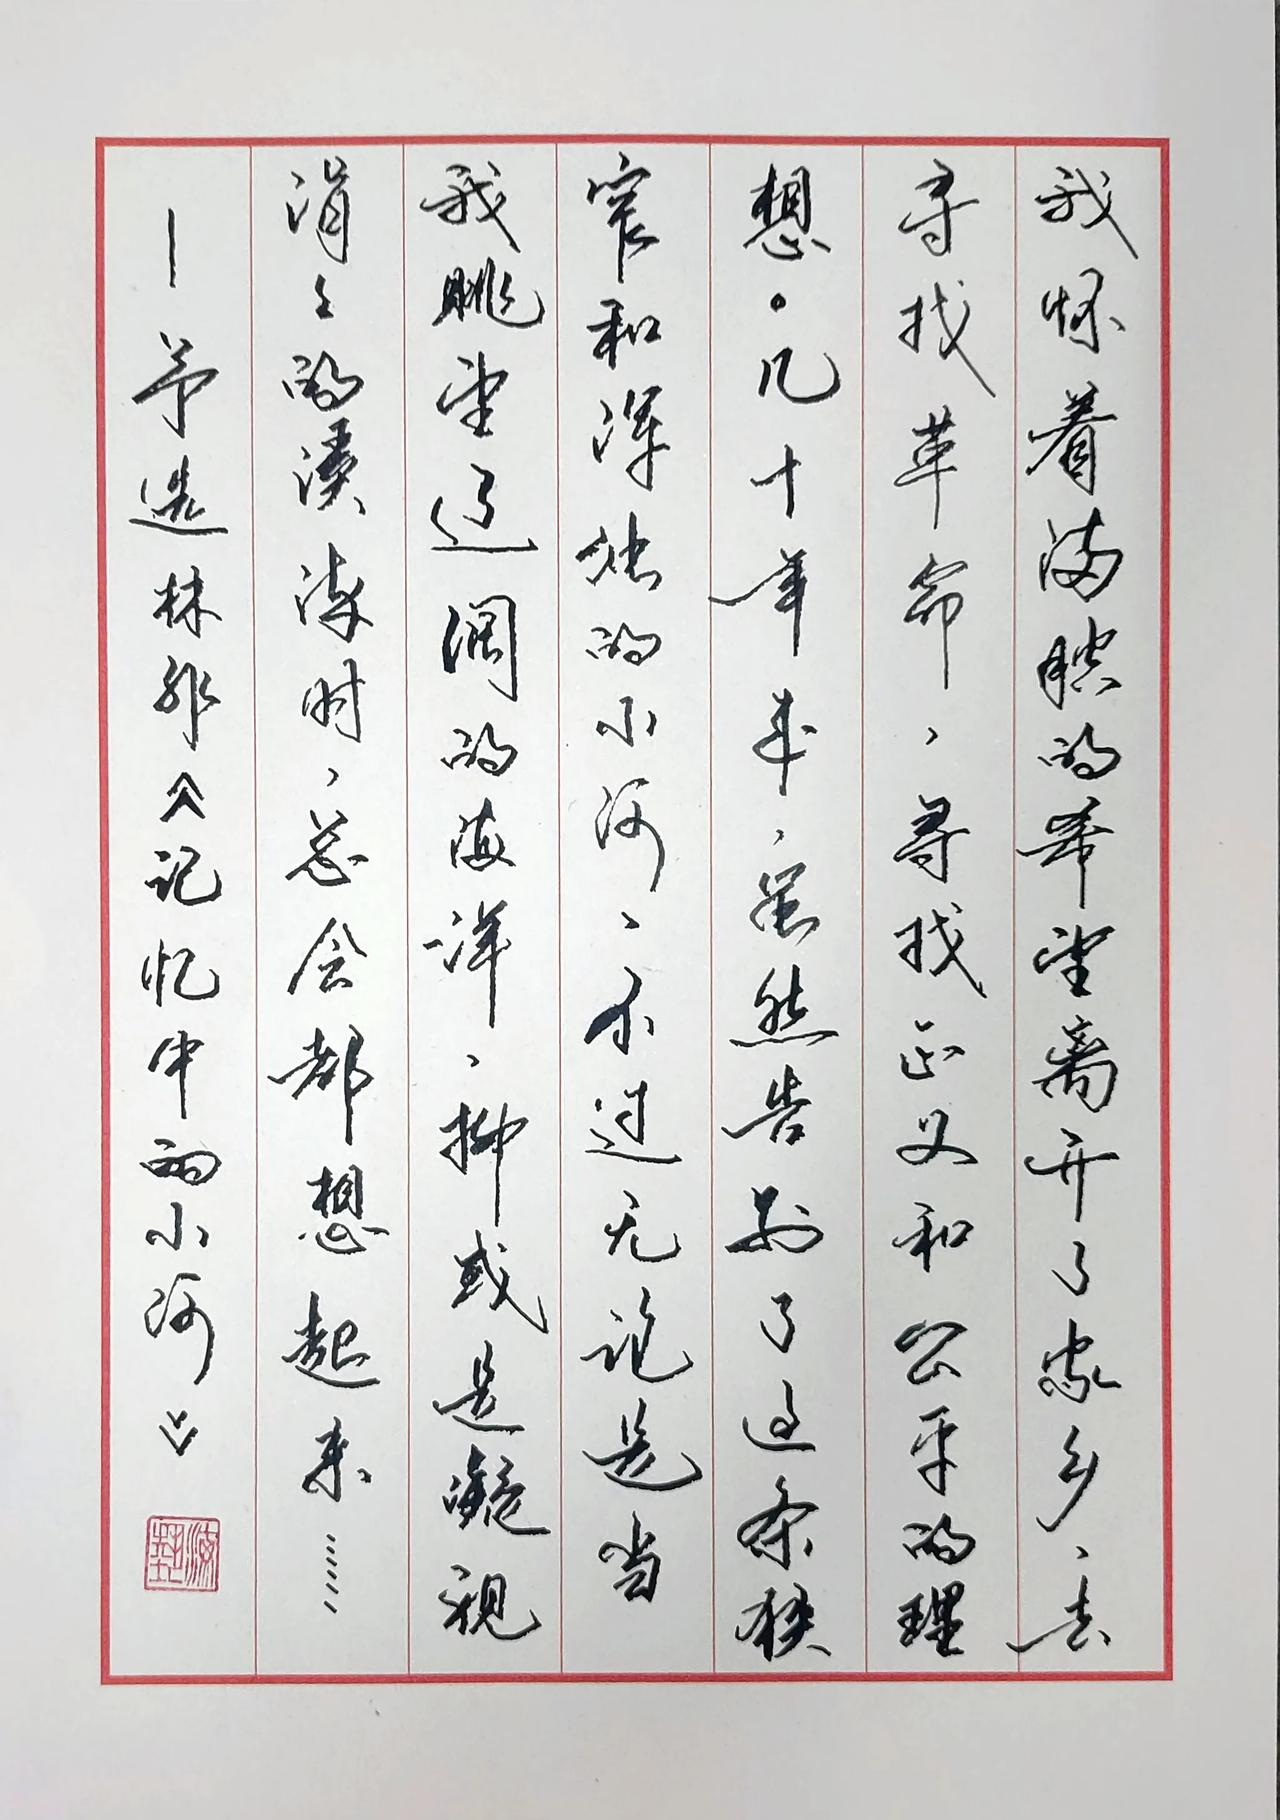 我怀着满腔的希望离开了家乡、去
寻找革命、寻找正义和公平的理
想。几十年来、虽然告别了这条狭
窄和浑浊的小河、不过无论是当
我眺望辽阔的海洋、抑或是凝视
涓々的溪涛时、总会都想起来……
—节选林非《记忆中的小河》